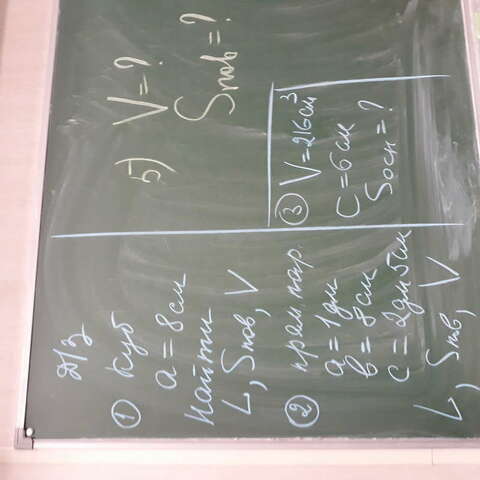 Д/з
① Куб
a = 8 см
Найти
L, Sпов, V
② прям. пар.
a = 1 дм
в = 8 см
c = 2 дм 5 см
L, Sпов, V
③ V = 216 см³
C = 6 см
Sосн = ?
5) V = ?
Sпов = ?